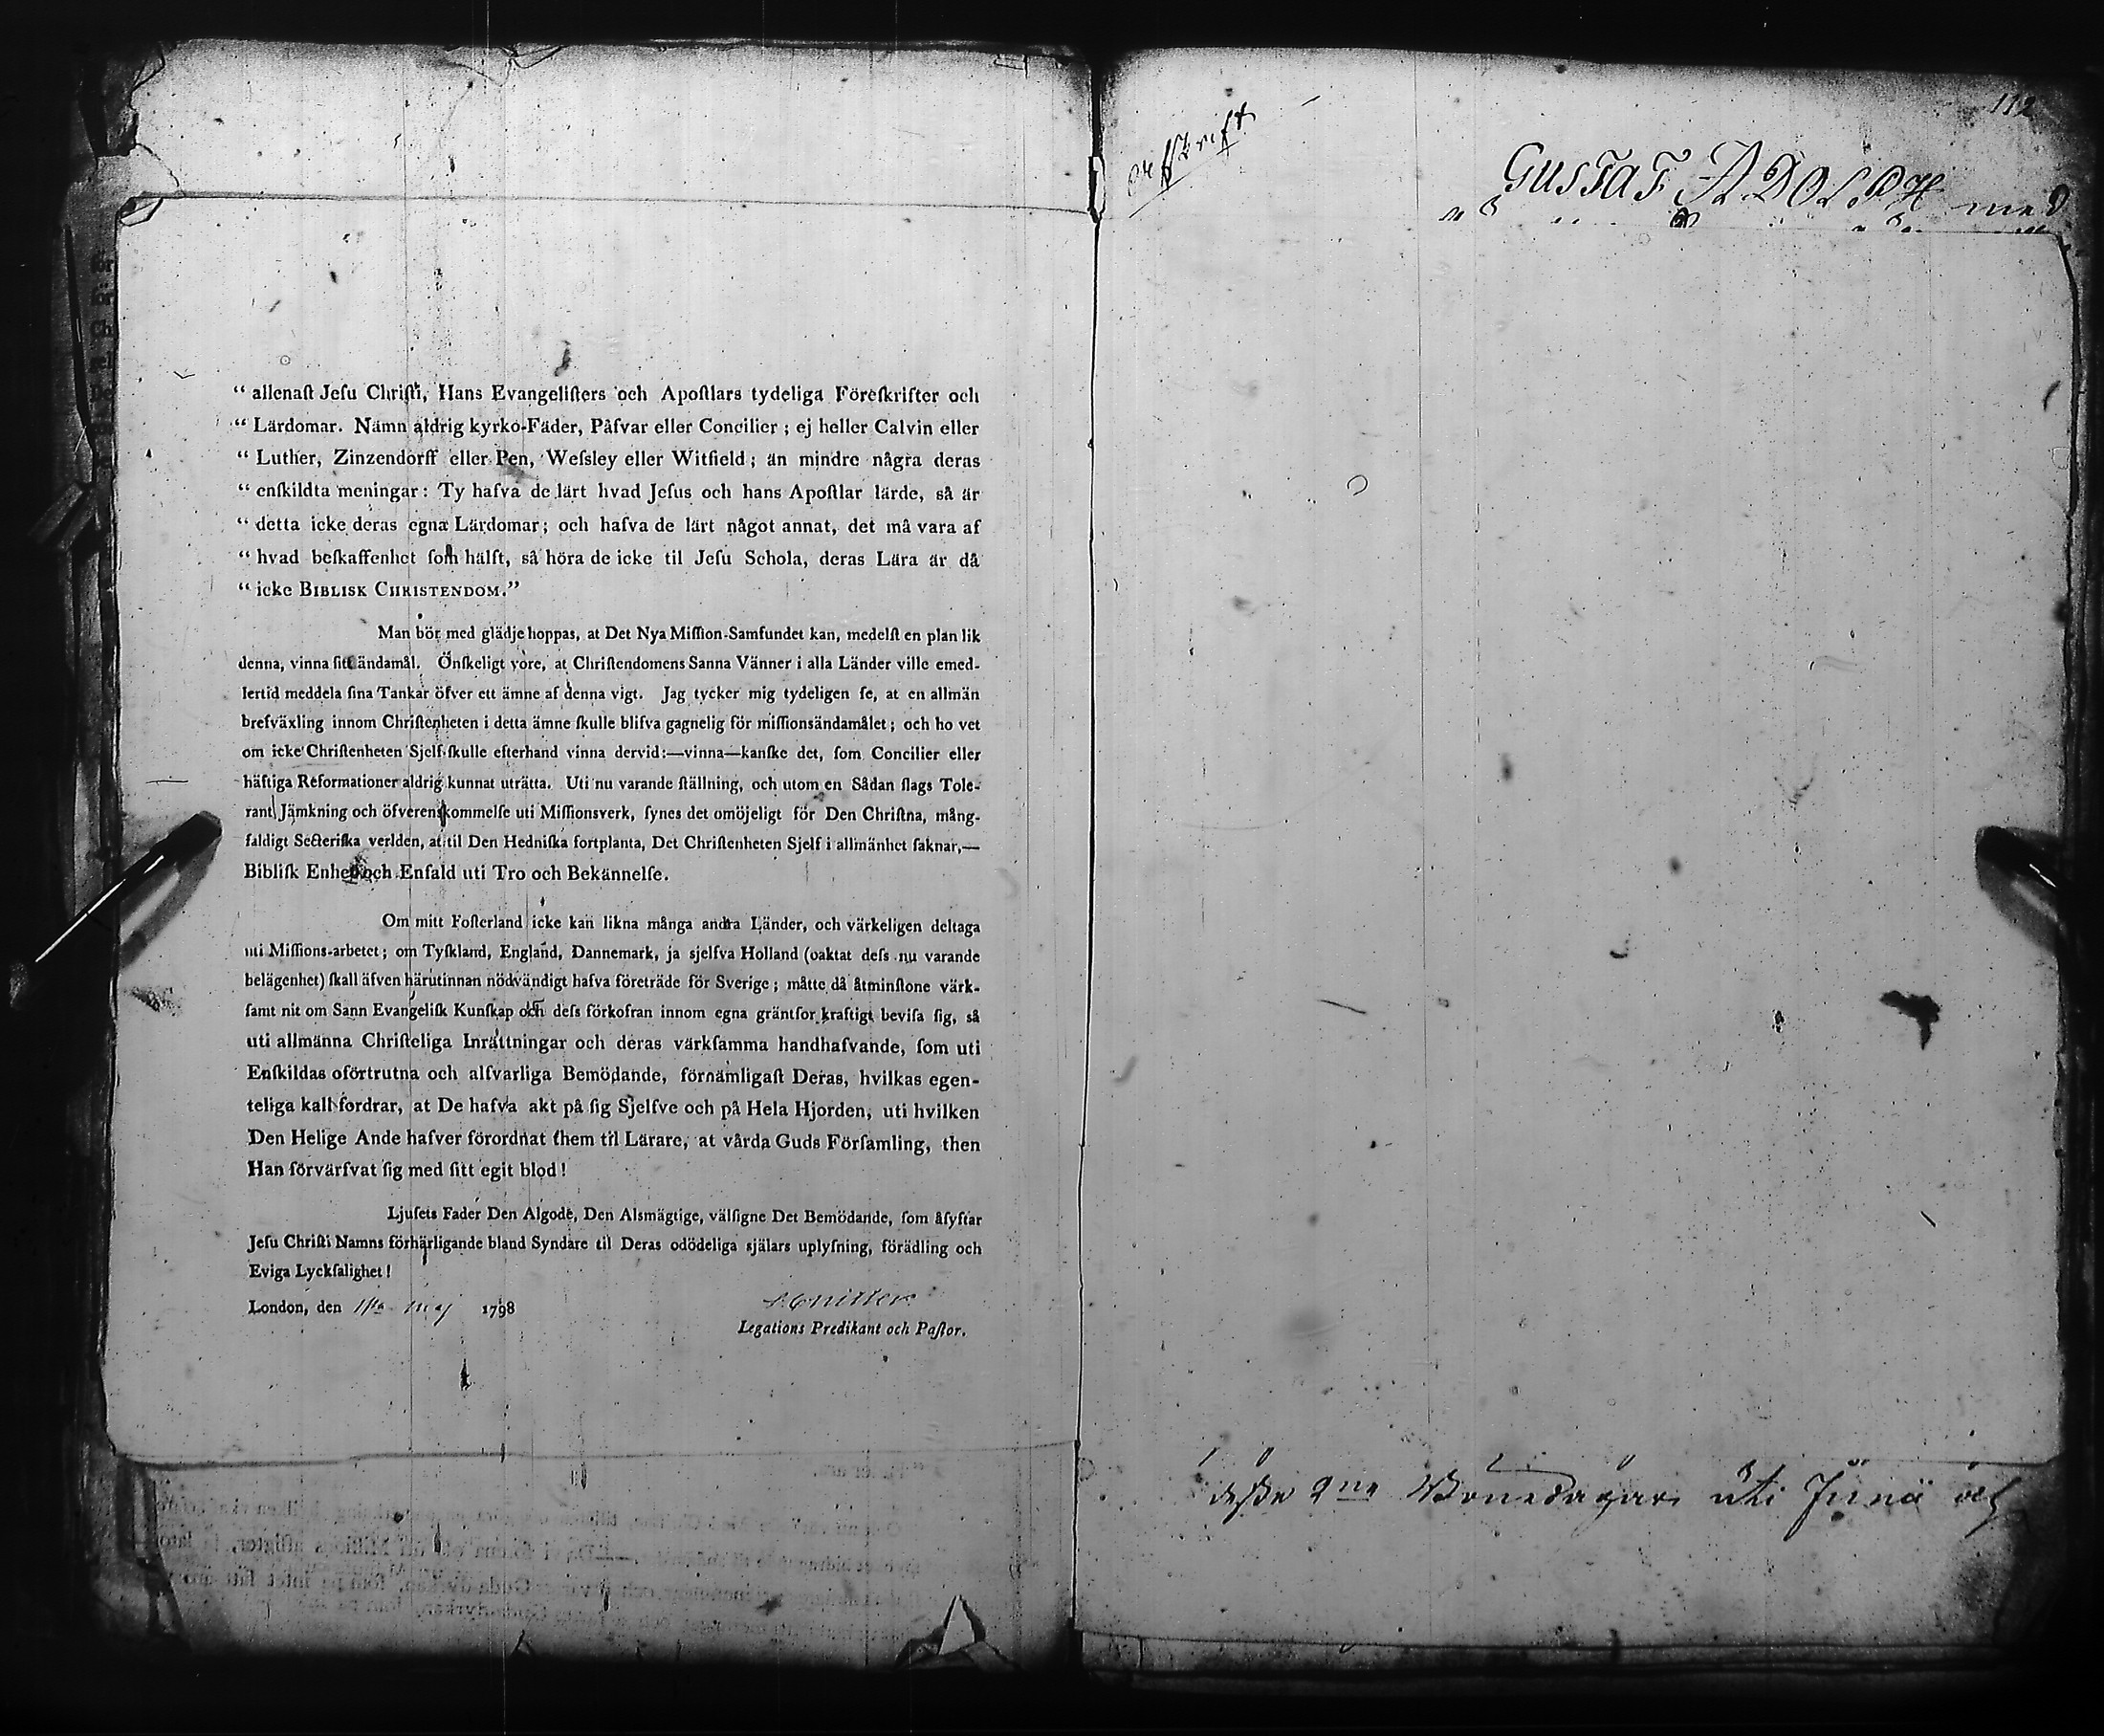 “ allenaſt Jeſu Chriſti, Hans Evangeliſters och Apoſtlars tydeliga Föreſkrifter och
“ Lärdomar. Nämn aldrig kyrko-Fäder, Påfvar eller Concilier ; ej heller Calvin eller
“ Luther, Zinzendorff eller Pen, Weſsley eller Witfield ; än mindre några deras
“ enſkildta meningar: Ty hafva de lärt hvad Jeſus och hans Apoſtlar lärde, så är
“ detta icke deras egna Lärdomar; och hafva de lärt något annat, det må vara af
“ hvad beſkaffenhet ſom hälſt, så höra de icke til Jeſu Schola, deras Lära är då
“ icke BIBLISK CHRISTENDOM.”
Man bör med glädje hoppas, at Det Nya Miſſion-Samfundet kan, medelſt en plan lik
denna, vinna ſitt ändamål. Önſkeligt vore, at Chriſtendomens Sanna Vänner i alla Länder ville emed-
lertid meddela ſina Tankar öfver ett ämne af denna vigt. Jag tycker mig tydeligen ſe, at en allmän
brefväxling innom Chriſtenheten i detta ämne ſkulle blifva gagnelig för miſſionsändamålet ; och ho vet
om icke Chriſtenheten Sjelf ſkulle efterhand vinna dervid:—vinna—kanſke det, ſom Concilier eller
häftiga Reformationer aldrig kunnat uträtta. Uti nu varande ſtällning, och utom en Sådan ſlags Tole-
rant Jämkning och öfverenskommelſe uti Miſſionsverk, ſynes det omöjeligt för Den Chriſtna, mång-
faldigt Secteriſka verlden, at til Den Hedniſka fortplanta, Det Chriſtenheten Sjelf i allmänhet ſaknar,—
Bibliſk Enhet och Enfald uti Tro och Bekännelſe.
Om mitt Foſterland icke kan likna många andra Länder, och värkeligen deltaga
uti Miſſions-arbetet ; om Tyſkland, England, Dannemark, ja sjelfva Holland (oaktat deſs nu varande
belägenhet) ſkall äfven härutinnan nödvändigt hafva företräde för Sverige ; måtte då åtminſtone värk-
ſamt nit om Sann Evangeliſk Kunſkap och deſs förkofran innom egna gräntſor kraftigt beviſa ſig, så
uti allmänna Chriſteliga Inrättningar och deras värkſamma handhafvande, ſom uti
Enſkildas oförtrutna och alfvarliga Bemödande, förnämligaſt Deras, hvilkas egen-
teliga kall fordrar, at De hafva akt på ſig Sjelfve och på Hela Hjorden, uti hvilken
Den Helige Ande hafver förordnat them til Lärare, at vårda Guds Förſamling, then
Han förvärfvat ſig med ſitt egit blod !
Ljuſets Fader Den Algode, Den Alsmägtige, välſigne Det Bemödande, ſom åſyftar
Jeſu Chriſti Namns förhärligande bland Syndare til Deras odödeliga själars uplyſning, förädling och
Eviga Lyckſalighet !
London, den may 1798
Legations Predikant och Paſtor.
112
Afſkrift
GUSTAF ADOLPH med
deſſe Bönedagar uti Junii och